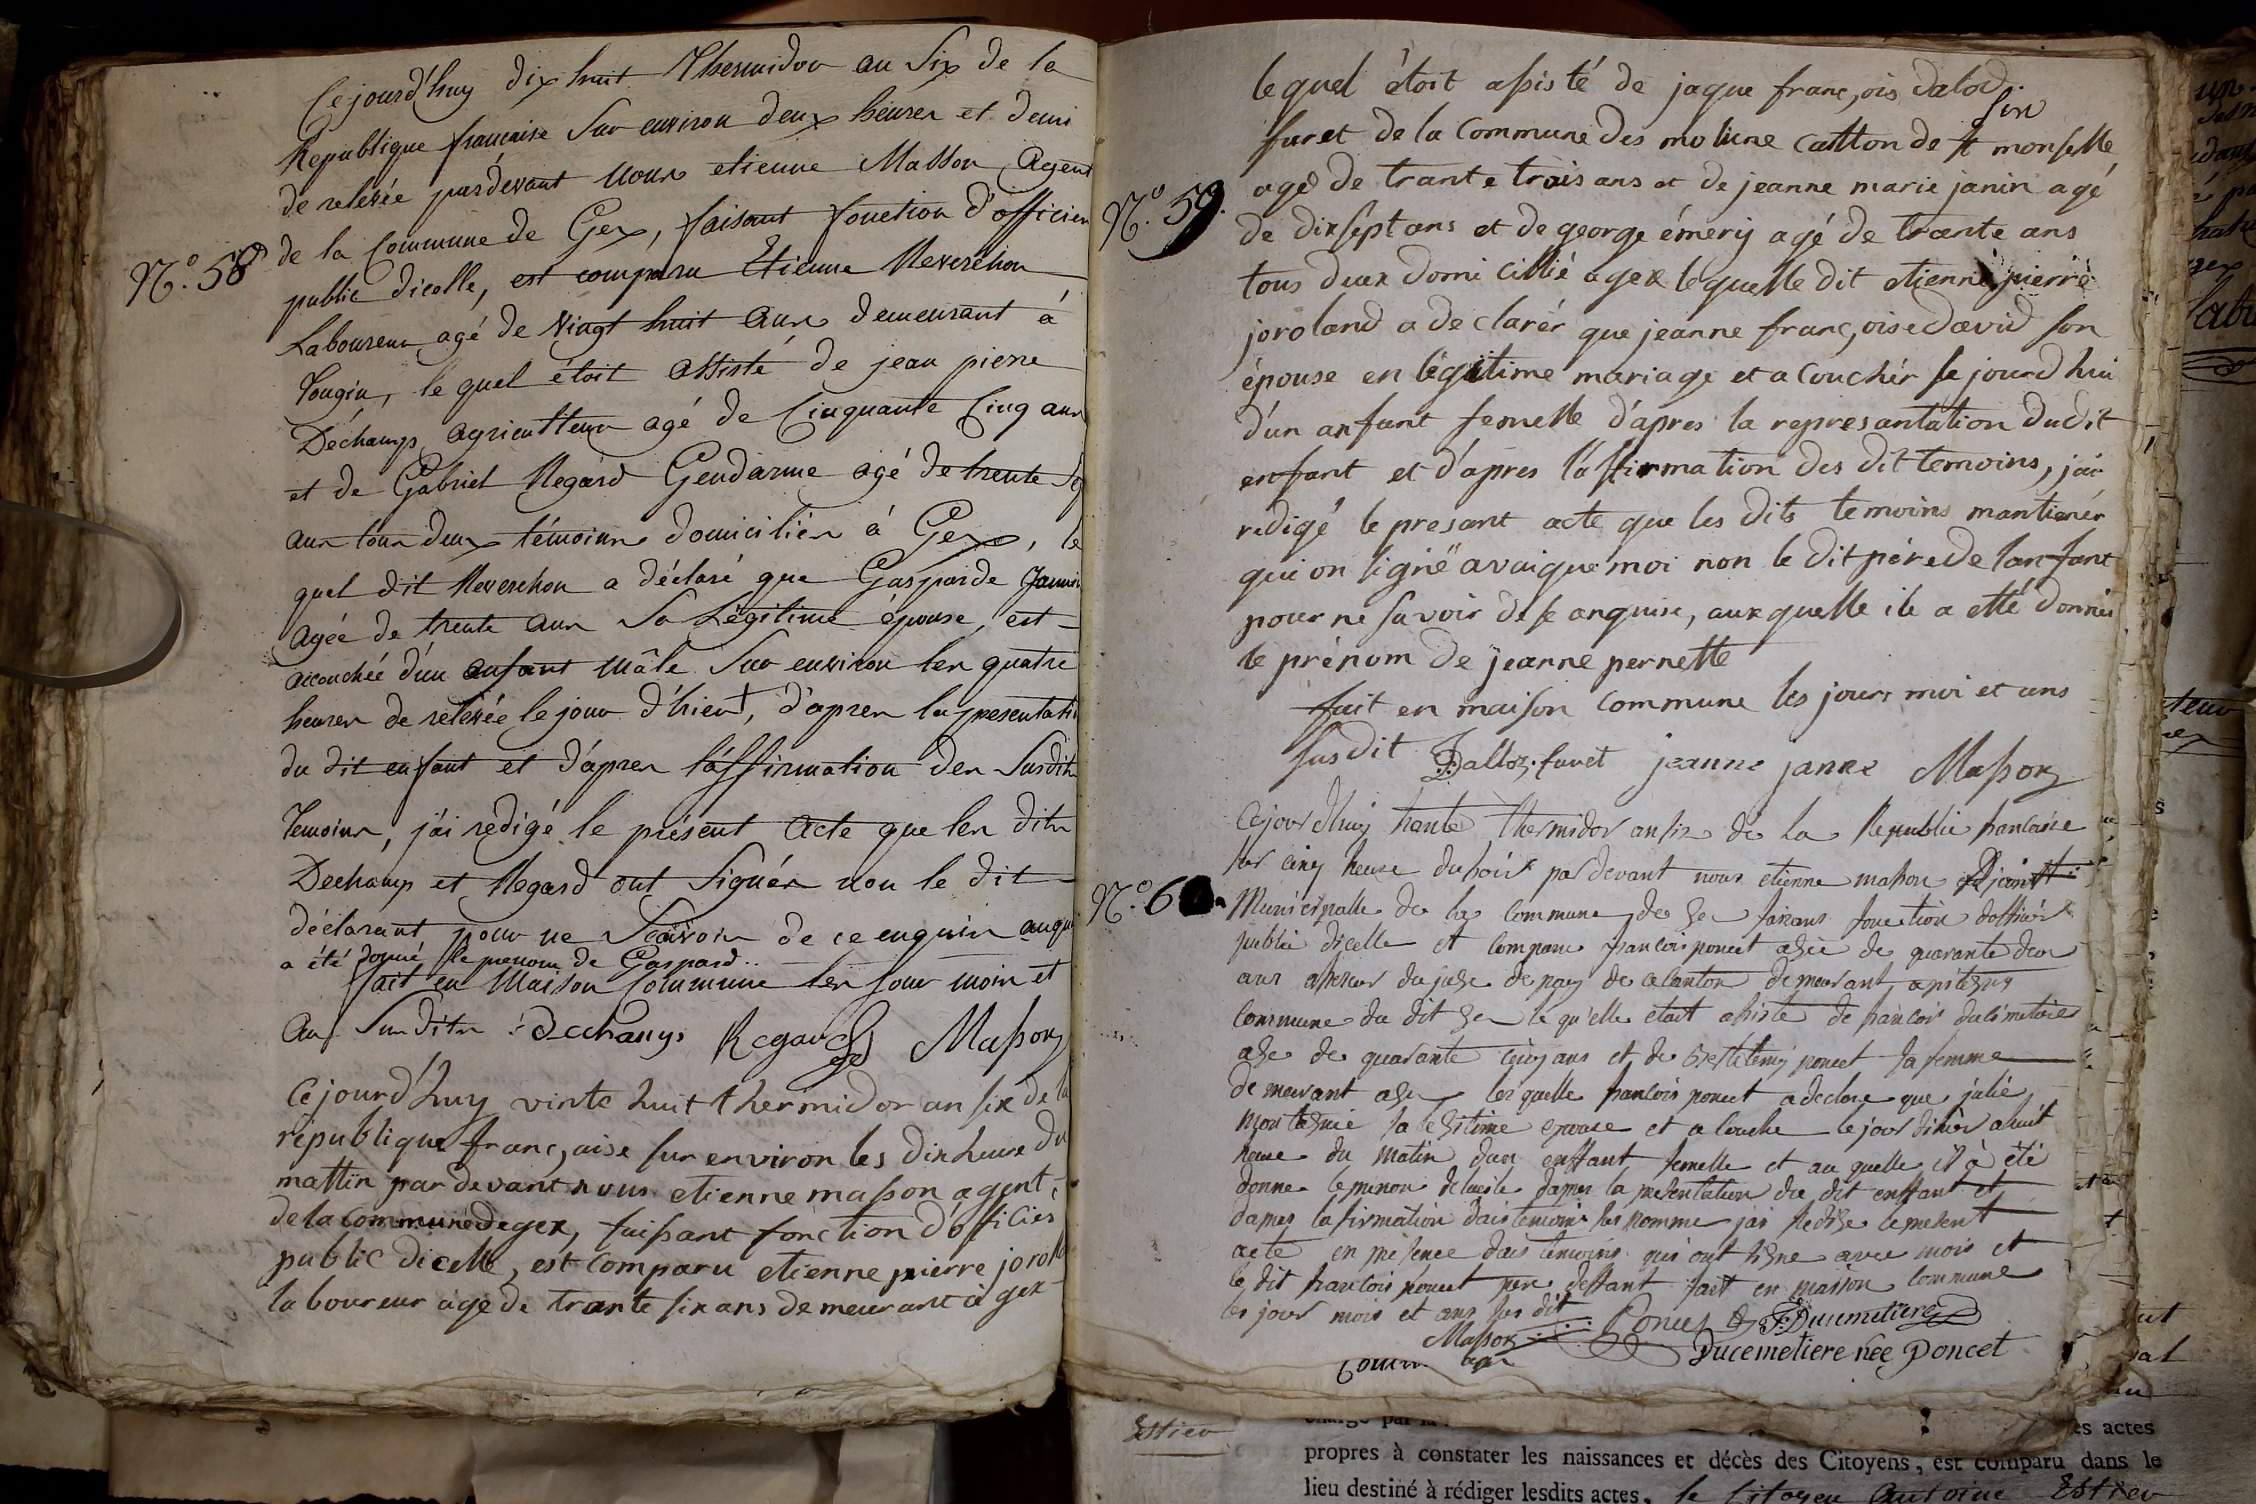 Cejourd'huy dix huit Thermidor an Six de la
Republique francaise Sur environ deux heures et demi
de relevée pardevant nous etienne Masson Agent
N.° 58
de la Commune de Gex, faisant fonction d'officier
public dicelle, est comparu Etienne Reverchon
Laboureur agé de vingt huit ans demeurant à
Tougin, le quel étoit assisté de jean pierre
Déchamps agriculteur agé de Cinquante Cinq ans
et de Gabriel Regard Gendarme agé de trente
ans tous deux témoins domiciliés à Gex, le
quel dit Reverchon a déclaré que Gasparde
agée de trente ans Sa Légitime épouse, est
accouchée d'un enfant mâle Sur environ les quatre
heures de relevée le jour d'hiert, d'apres la presentati
du dit enfant et d'apres l'affirmation des Susdits
Temoins, j'ai rédigé le présent acte que les dits
Dechamp et Regard ont Signés non le dit
déclarant pour ne Scavoir de ce enquis auqu
a été donné le prenom de Gaspard..
fait en Maison Commune les jour mois et
an Susdits Dechamps Regard Masson
Cejourd'huy vinte huit thermidor an six de la
république franc,aise sur environ les dix heure du
mattin par devant nous etienne masson agent
de la commune de gex, faissant fonction d'officier
public dicelle, est comparu etienne pierre
laboureur agé de trante six ans demeurant à gex
lequel étoit assisté de jaque franc,ois dalod
furet de la commune des moliune cantton de st
N.° 59.
agé de trante trois ans et de jeanne marie janin agé
de dix sept ans et de george émery agé de trante ans
tous deux domi cillié a gex lequelle dit etienne pierre
joroland a declarér que jeanne franc,oise david son
épouse en légitime mariage et a couchér se jourd hui
d'un anfant femelle d'apres la represantation dudit
enfant et d'apres l'affirmation des dit temoins, jai
redigé le presant acte que les dits temoins mantienér
qui on signé avaique moi non le dit pére de lanfant
pour ne savoir de se anquise, aux quelle ile a etté donnér
le prénom de jeanne pernette
fait en maison commune les jours moi et ans
susdit Dalloz. furet jeanne janne Masson
Cejourdhuy trante thermidor an six de la Republic francaise
sur cinq heure du soir par devant nous etienne masson adjoint
N.° 60
Municipalle de la commune de Gex faisans fonction doffisier
public dicelle et comparu francois poncet agée de quarante deux
ans assesseur du juge de paix de ce canton demeurant
commune du dit Gex le qu'elle etait assisté de francois ducimetiere
age de quarante cinq ans et de poncet sa femme
demeurant a Gex lesquelle francois poncet a declare que julie
sa legitime epouse et a couche le jour dihier a huit
heure du matin dun enffant femelle et au quelle il à été
donne le prenon de lucile dapres la presentation du dit enffant et
dapres lafirmation dais temoins sus nomme jai redige le present
acte en presence dais temoins qui ont signe avec mois et
le dit francois poncet pere deffant fait en maison commune
les jour mois et ans sus dit
Poncet F: Ducimetiere
Masson
Ducemetiere née Poncet
propres à constater les naissances et décès des Citoyens, est comparu dans le
lieu destiné à rédiger lesdits actes, le Citoyen Antoine